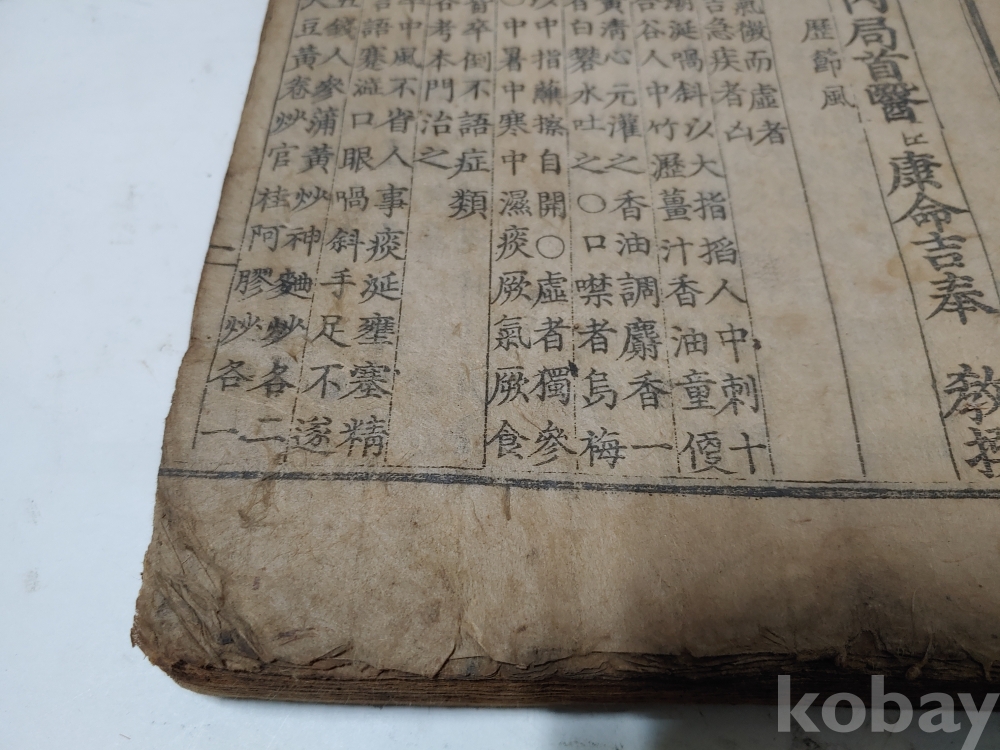 內局首醫臣康命吉奉 敎撰
歷節風
氣微而虛者
吉急疾者㐫以大指搯人中刺十
潮涎喎斜
人中竹瀝薑汁香油童便
黃清心元灌之香油調麝香一
者白礬水吐之〇口噤者烏梅
以中指蘸擦自開〇虛者獨參
中暑中寒中濕痰厥氣厥食
卒倒不語症類
考本門治之
卒中風不省人事痰涎壅塞精
言語蹇澁口眼喎斜手足不遂
五錢人參蒲黃炒神麯炒各二
大豆黃卷炒官桂阿膠炒各一
二
kobay